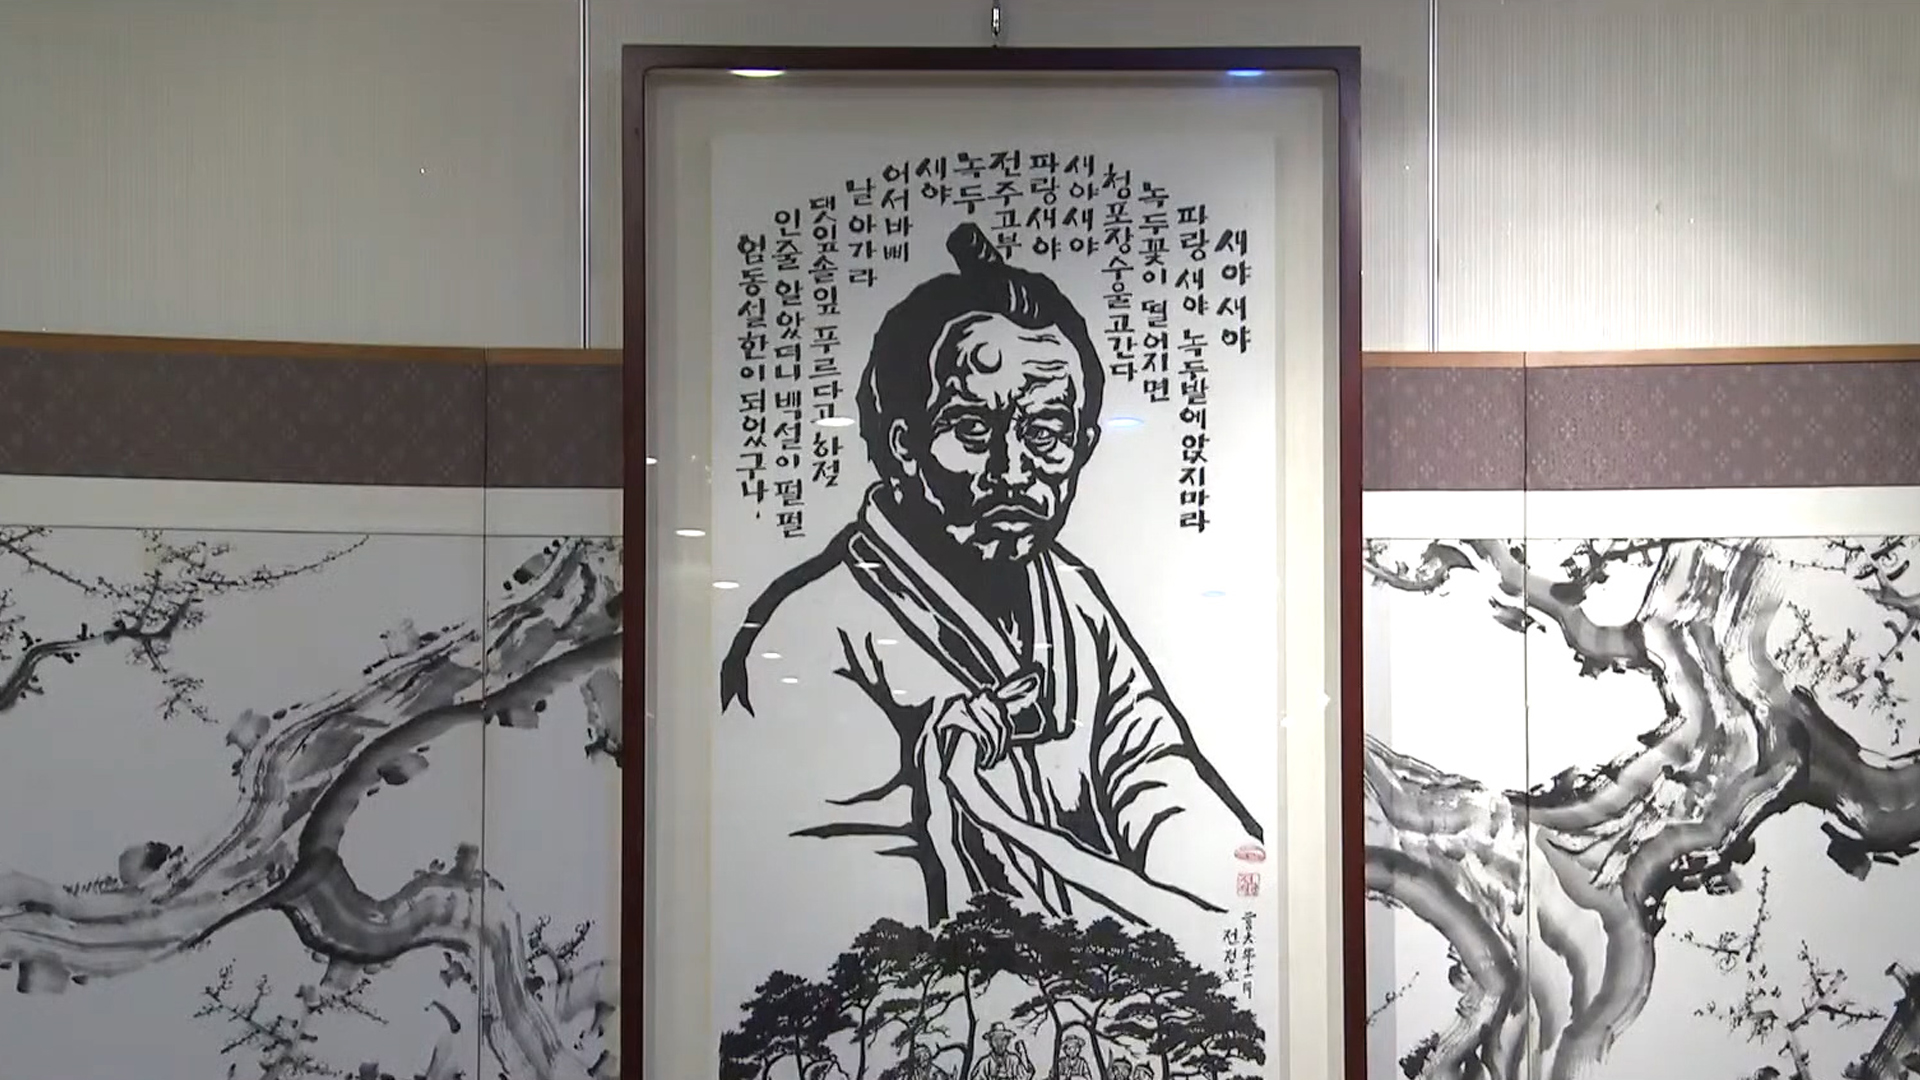 새야새야
파랑새야 녹두밭에앉지마라
녹두꽃이 떨어지면
청포장수울고간다
새야새야
파랑새야
전주고부
녹두
새야
어서바삐
날아가라
댓잎솔잎 푸르다고 하절
인줄 알았더니 백설이 펄펄
엄동설한이 되었구나.
전정호